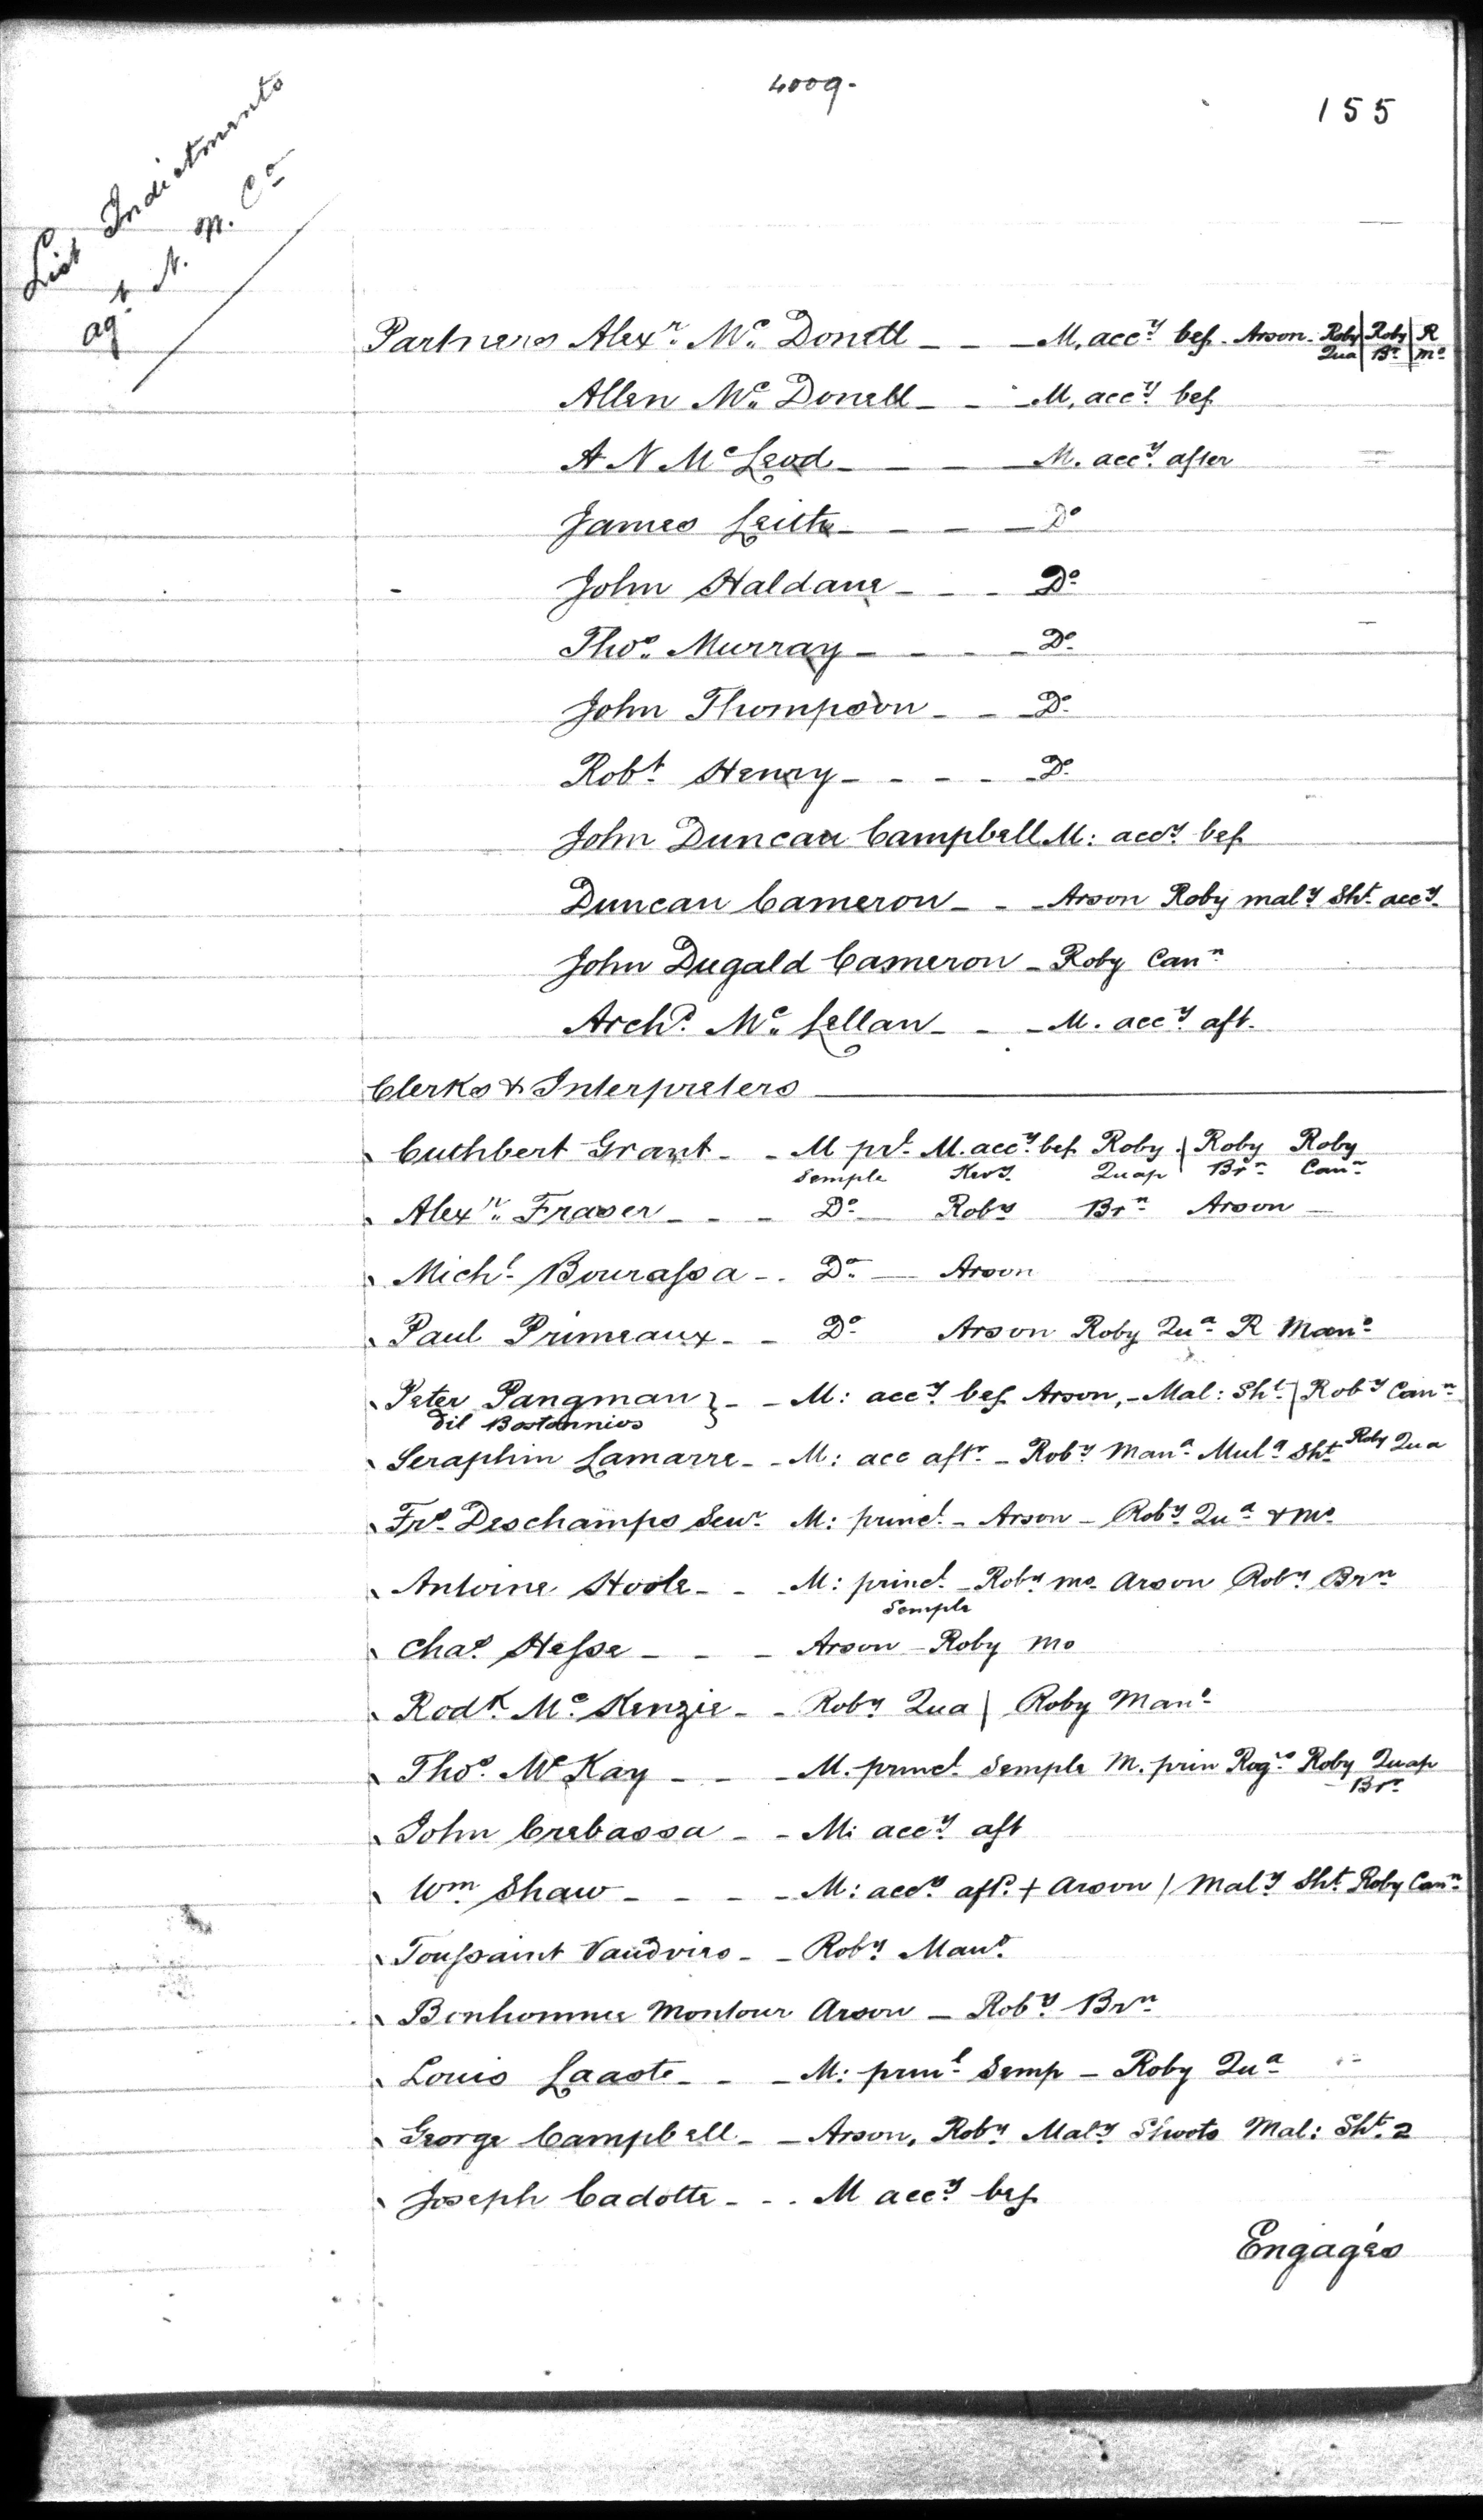 4009.
155
List Indictments
agt. N. W. Co
Partners Alexr. Mc. Donell - - - M, accy bef. Arson. Roby Qua | Roby Br | R mo
Allen Mc. Donell - - - M, accy. bef
A N McLeod - - - M. accy. after
James Leith - - - Do
John Haldane - - - Do
Thos. Murray - - - - Do
John Thompson - - - Do
Robt. Henry - - - - - Do
John Duncan Campbell M: accy. bef
Duncan Cameron - - - Arson Roby maly Sht. accy.
John Dugald Cameron - Roby Cann
Archd. Mc. Lellan - - - M. accy. aft.
Clerks & Interpreters
Cuthbert Grant - - M prl. M. accy. bef Roby | Roby Roby
Semple Kevy. Quap Brn Cann
Alexr. Fraser - - - Do Roby Brn Arson
Michl. Bourassa - . Do - Arson
Paul Primeaux - - Do Arson Roby Qua R Mano
Peter Pangman } - - M: accy bef Arson, - Mal: Sht. | Roby Cann
dit Bostonnios
Seraphin Lamarre - - M: acc aftr - Roby Mana Mula Sht Roby Qua
Frs. Deschamps Senr. M: princl. - Arson - Roby Qua & mo
Antoine Hoole - - - M: princl. - Roby mo Arson Roby Brn
Semple
Chas. Hesse - - - Arson - Roby mo
Rodk. Mc. Kenzie - - Roby Qua | Roby Mano
Thos. McKay - - - M. princl. Semple M. prin Rogrs Roby Quap
Brn
John Crebassa - - M: accy. aft
Wm Shaw - - - - M: accy. aftr. + Arson / Maly Sht. Roby Cann
Toussaint Vaudries - - Roby Mano
Bonhomme Montour Arson - Roby Brn
Louis Laaste - - - M: prinl. Semp - Roby Qua
George Campbell - - Arson, Roby Maly Shoots Mal: Sht. 2
Joseph Cadotte - - . M accy. bef
Engagés